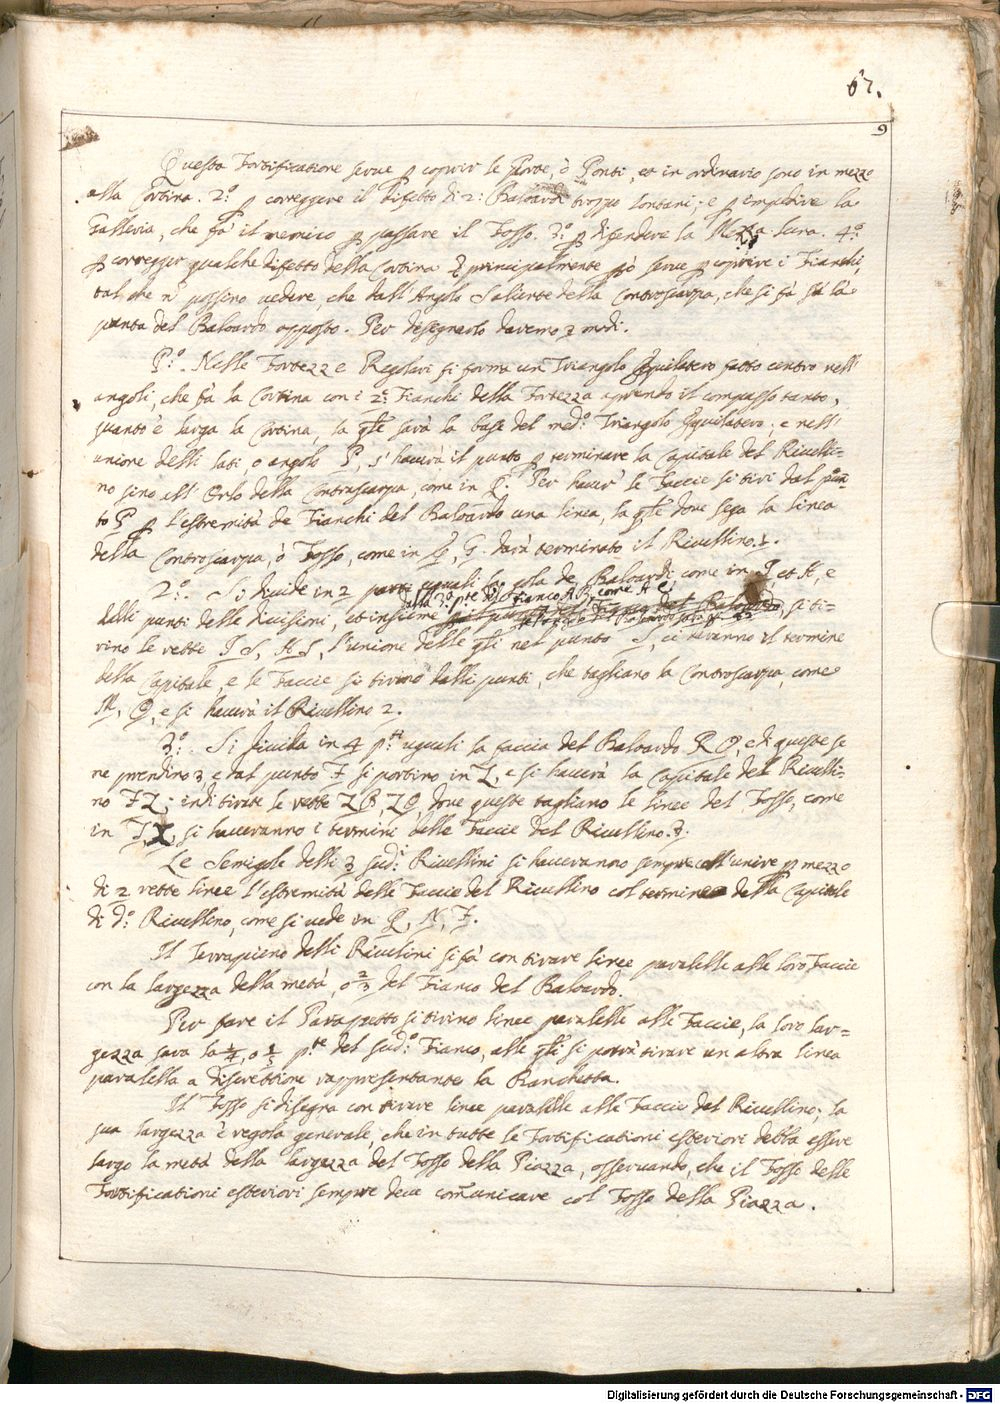 67.
9
Questa Fortificatione serue p coprir le Porte, ò Ponti, et in ordinario sono in mezzo
alla Cortina. 2.° p correggere il difetto di 2: Baloardi troppo lontani; e p impedire la
Galleria, che fà il nemico p passare il Fosso. 3.° p difendere la Mezza luna. 4.°
p corregger qualche difetto della Cortina principalmente però serue p coprire i Fianchi,
tal che n possino uedere, che dall'Angolo Saliente della Controscarpa, che si fà sù la
punta del Baloardo opposto. Per disegnarlo daremo 3 modi.
P.° Nelle Fortezze Regolari si forma un Triangolo Equilatero fatto centro nell'
angoli, che fà la Cortina con i 2: Fianchi della Fortezza aprendo il compasso tanto,
quanto è larga la Cortina, la qle sarà la base del med.° Triangolo Equilatero; e nell'
unione delli lati, o angolo P, s'hauerà il punto p terminare la Capitale del Riuelli=
no sino all'Orlo della Controscarpa, come in Q. Per hauer le Faccie si tiri dal pun=
to P p l'estremità de Fianchi del Baloardo una linea, la qle doue sega la linea
della Controscarpa, ò Fosso, come in G. darà terminato il Riuellino. 1.
2.° Si diuide in 2 parti eguali la gola de Baloardi come in I, et H, e
dalla 3: pte del fianco A B, come A C
dalli punti delle diuisioni, et insieme si ti=
rino le rette I S, H S, l'unione delle qli nel punto S, ci daranno il termine
della Capitale, e le Faccie si tirino dalli punti, che tagliano la Controscarpa, come
M, O, e si hauerà il Riuellino 2.
3.° Si diuida in 4 pti uguali la faccia del Baloardo R O, e di queste se
ne prendino 3, e dal punto F si portino in Z, e si hauerà la Capitale del Riuelli=
no F Z; indi tirate le rette Z B, Z O, doue queste tagliano le linee del Fosso, come
in T, X, si haueranno i termini delle Faccie del Riuellino. 3.
Le Semigole delli 3 sud.i Riuellini si haueranno sempre coll'unire p mezzo
di 2 rette linee l'estremità delle Faccie del Riuellino col termine della Capitale
di d.° Riuellino, come si uede in Q, N, F.
Il Terrapieno delli Riuelini si fà con tirare linee paralelle alle loro Faccie
con la largezza della metà, o 2/3 del Fianco del Baloardo.
Per fare il Parapetto si tirino linee paralelle alle Faccie, la loro lar=
gezza sara la 1/4, o 1/5 pte del sud.° Fianco, alle qli si potrà tirare un altra linea
paralella a discrettione rappresentante la Banchetta.
Il Fosso si disegna con tirare linee paralelle alle Faccie del Riuellino; la
sua largezza è regola generale, che in tutte le Fortificationi esteriori debba essere
largo la metà della largezza del Fosso della Piazza, osseruando, che il Fosso delle
Fortificationi esteriori sempre deue comunicare col Fosso della Piazza.
Digitalisierung gefördert durch die Deutsche Forschungsgemeinschaft - DFG